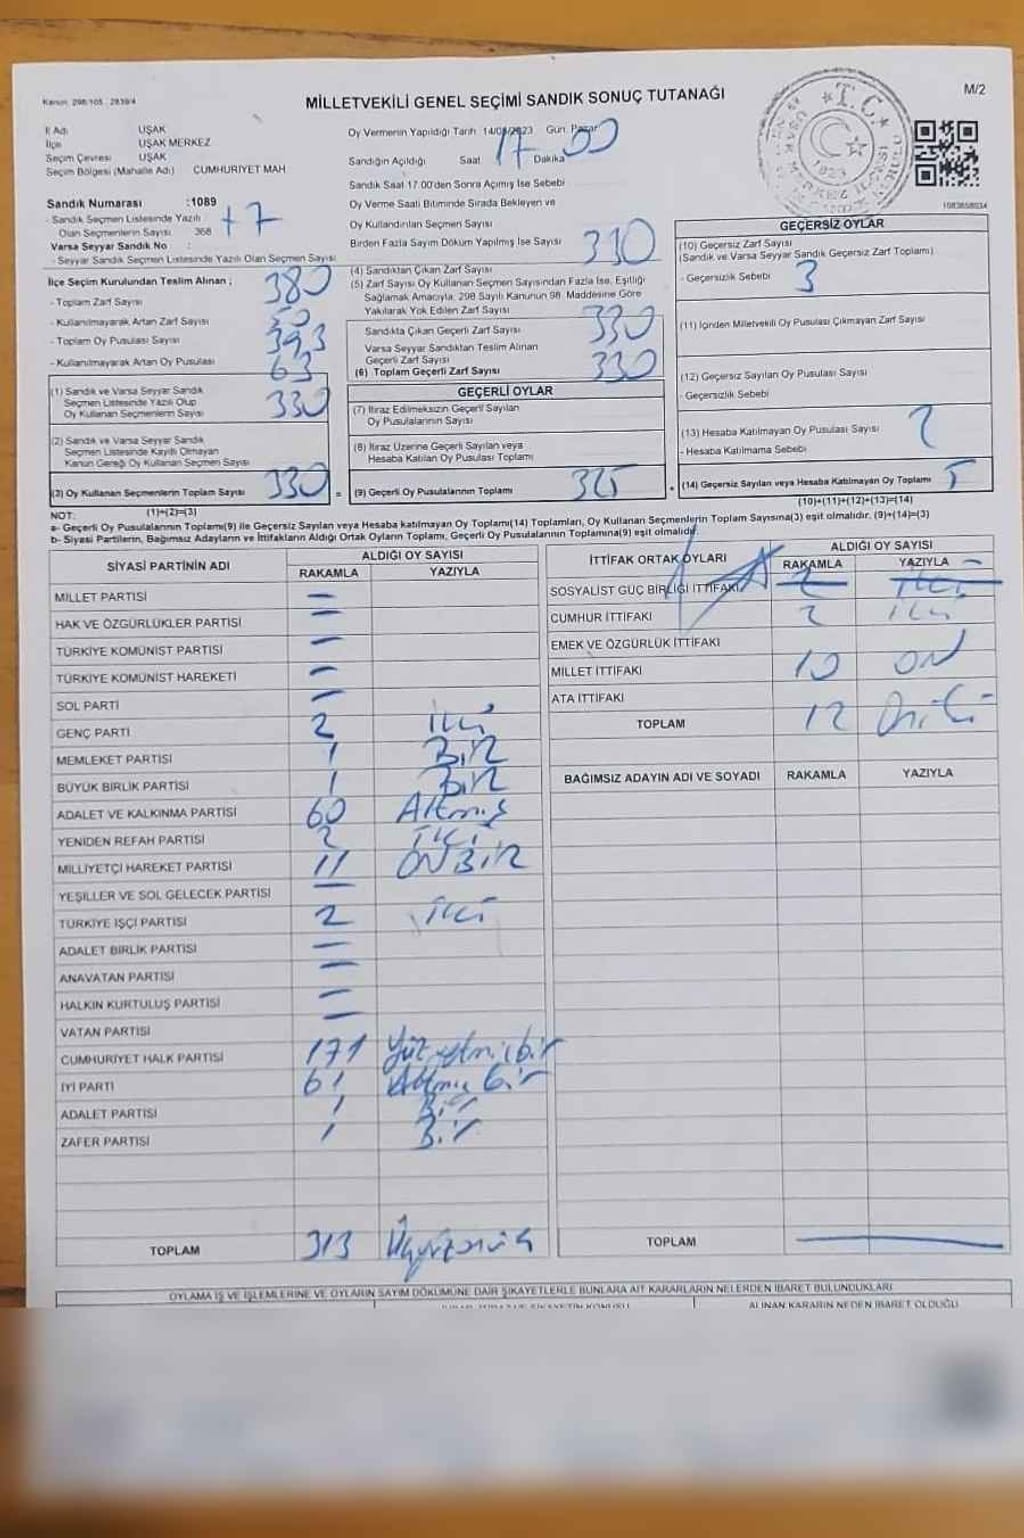 Kanun: 298/105 - 2839/4
MİLLETVEKİLİ GENEL SEÇİMİ SANDIK SONUÇ TUTANAĞI
M/2
İl Adı UŞAK
İlçe UŞAK MERKEZ
Seçim Çevresi UŞAK
Seçim Bölgesi (Mahalle Adı) CUMHURİYET MAH
Sandık Numarası :1089
- Sandık Seçmen Listesinde Yazılı
Olan Seçmenlerin Sayısı 368 +7
Varsa Seyyar Sandık No :
- Seyyar Sandık Seçmen Listesinde Yazılı Olan Seçmen Sayısı
Oy Vermenin Yapıldığı Tarih 14/05/2023 Gün: Pazar
Sandığın Açıldığı Saat 17 Dakika 00
Sandık Saat 17.00'den Sonra Açımış İse Sebebi
Oy Verme Saati Bitiminde Sırada Bekleyen ve
Oy Kullandırılan Seçmen Sayısı
Birden Fazla Sayım Döküm Yapılmış İse Sayısı
T.C.
1923
1083658034
İlçe Seçim Kurulundan Teslim Alınan ; 380
- Toplam Zarf Sayısı
- Kullanılmayarak Artan Zarf Sayısı 50
- Toplam Oy Pusulası Sayısı 393
- Kullanılmayarak Artan Oy Pusulası 63
(1) Sandık ve Varsa Seyyar Sandık
Seçmen Listesinde Yazılı Olup
Oy Kullanan Seçmenlerin Sayısı 330
(2) Sandık ve Varsa Seyyar Sandık
Seçmen Listesinde Kayıtlı Olmayan
Kanun Gereği Oy Kullanan Seçmen Sayısı
(3) Oy Kullanan Seçmenlerin Toplam Sayısı 330 =
(1)+(2)=(3)
(4) Sandıktan Çıkan Zarf Sayısı 330
(5) Zarf Sayısı Oy Kullanan Seçmen Sayısından Fazla İse, Eşitliği
Sağlamak Amacıyla, 298 Sayılı Kanunun 98. Maddesine Göre
Yakılarak Yok Edilen Zarf Sayısı
Sandıkta Çıkan Geçerli Zarf Sayısı 330
Varsa Seyyar Sandıktan Teslim Alınan
Geçerli Zarf Sayısı
(6) Toplam Geçerli Zarf Sayısı 330
GEÇERLİ OYLAR
(7) İtiraz Edilmeksizin Geçerli Sayılan
Oy Pusulalarının Sayısı
(8) İtiraz Üzerine Geçerli Sayılan veya
Hesaba Katılan Oy Pusulası Toplamı
(9) Geçerli Oy Pusulalarının Toplamı 325 +
GEÇERSİZ OYLAR
(10) Geçersiz Zarf Sayısı
(Sandık ve Varsa Seyyar Sandık Geçersiz Zarf Toplamı)
- Geçersizlik Sebebi 3
(11) İçinden Milletvekili Oy Pusulası Çıkmayan Zarf Sayısı
(12) Geçersiz Sayılan Oy Pusulası Sayısı
- Geçersizlik Sebebi
(13) Hesaba Katılmayan Oy Pusulası Sayısı 2
- Hesaba Katılmama Sebebi
(14) Geçersiz Sayılan veya Hesaba Katılmayan Oy Toplamı 5
(10)+(11)+(12)+(13)=(14)
NOT:
a- Geçerli Oy Pusulalarının Toplamı(9) ile Geçersiz Sayılan veya Hesaba katılmayan Oy Toplamı(14) Toplamları, Oy Kullanan Seçmenlerin Toplam Sayısına(3) eşit olmalıdır. (9)+(14)=(3)
b- Siyasi Partilerin, Bağımsız Adayların ve İttifakların Aldığı Ortak Oyların Toplamı, Geçerli Oy Pusulalarının Toplamına(9) eşit olmalıdır.
SİYASİ PARTİNİN ADI ALDIĞI OY SAYISI
RAKAMLA YAZIYLA
MİLLET PARTİSİ –
HAK VE ÖZGÜRLÜKLER PARTİSİ –
TÜRKİYE KOMÜNİST PARTİSİ –
TÜRKİYE KOMÜNİST HAREKETİ –
SOL PARTİ –
GENÇ PARTİ 2 İki
MEMLEKET PARTİSİ 1 Bir
BÜYÜK BİRLİK PARTİSİ 1 Bir
ADALET VE KALKINMA PARTİSİ 60 Altmış
YENİDEN REFAH PARTİSİ 2 İki
MİLLİYETÇİ HAREKET PARTİSİ 11 ON BİR
YEŞİLLER VE SOL GELECEK PARTİSİ –
TÜRKİYE İŞÇİ PARTİSİ 2 İki
ADALET BİRLİK PARTİSİ –
ANAVATAN PARTİSİ –
HALKIN KURTULUŞ PARTİSİ –
VATAN PARTİSİ –
CUMHURİYET HALK PARTİSİ 171 Yüzyetmişbir
İYİ PARTİ 61 Altmış bir
ADALET PARTİSİ 1 Bir
ZAFER PARTİSİ 1 Bir
TOPLAM 313
İTTİFAK ORTAK OYLARI ALDIĞI OY SAYISI
RAKAMLA YAZIYLA
SOSYALİST GÜÇ BİRLİĞİ İTTİFAKI 2 İki
CUMHUR İTTİFAKI 2 İki
EMEK VE ÖZGÜRLÜK İTTİFAKI
MİLLET İTTİFAKI 10 ON
ATA İTTİFAKI
TOPLAM 12 Oniki
BAĞIMSIZ ADAYIN ADI VE SOYADI RAKAMLA YAZIYLA
TOPLAM
OYLAMA İŞ VE İŞLEMLERİNE VE OYLARIN SAYIM DÖKÜMÜNE DAİR ŞİKAYETLERLE BUNLARA AİT KARARLARIN NELERDEN İBARET BULUNDUKLARI
ALINAN KARARIN NEDEN İBARET OLDUĞU